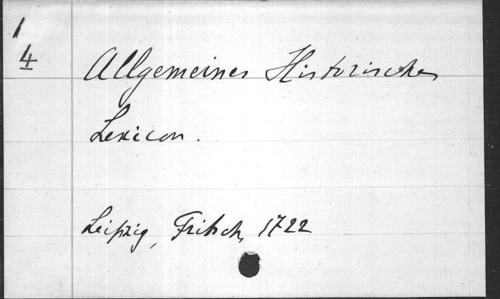 1
4
Allgemeines Historisches
Lexicon.
Leipzig, Fritsch, 1722